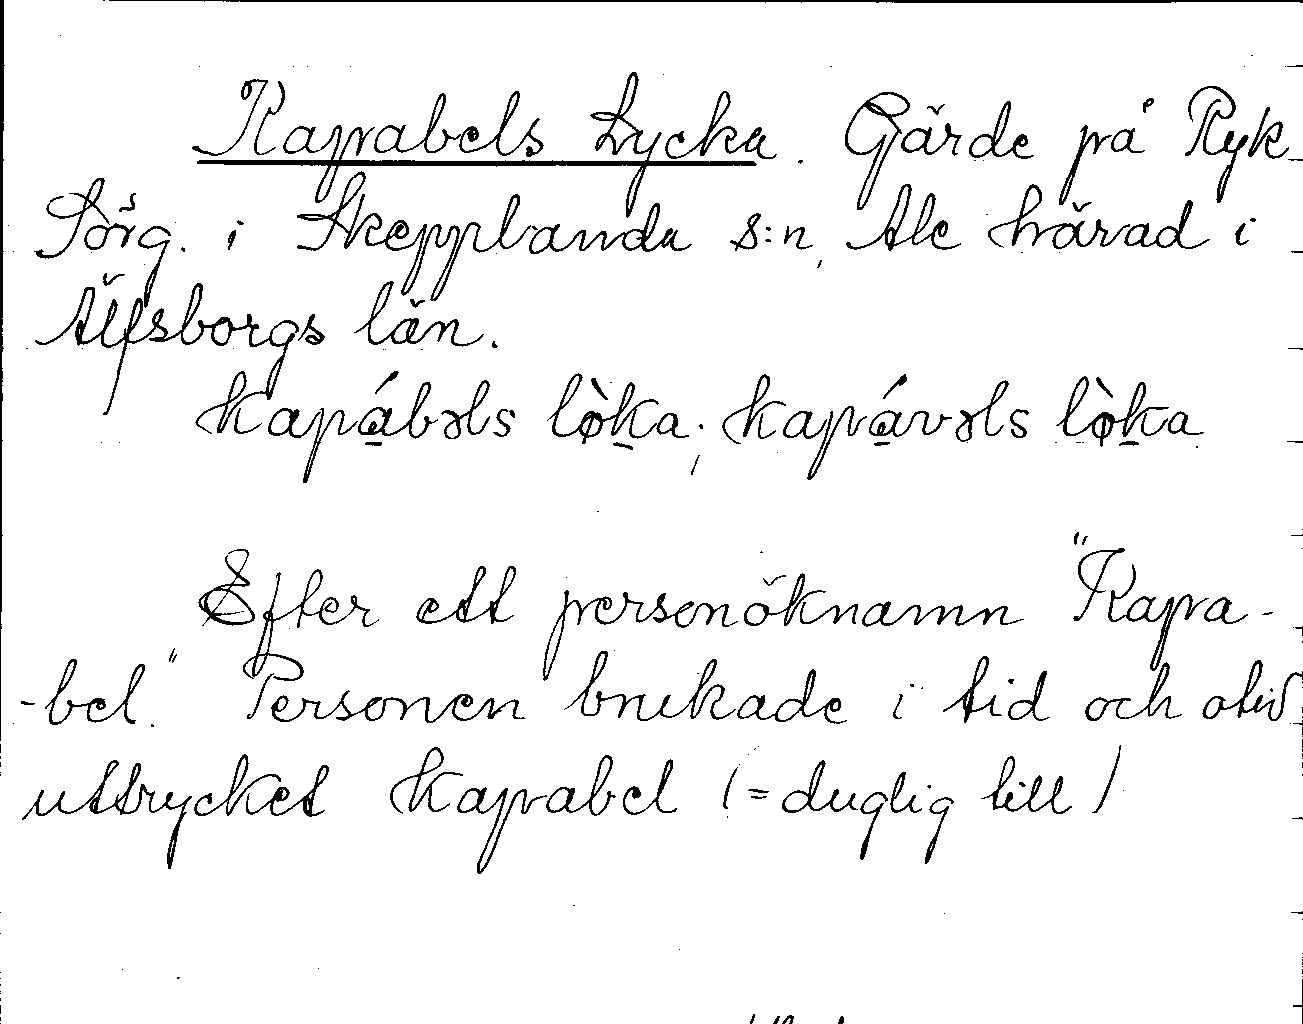 Kapabels Lycka. Gärde på Ryk
Sörg. i Skepplanda s:n, Ale härad i
Älfsborgs län.
kapábəls lø̀ka; kapávəls lø̀ka
Efter ett personöknamn "Kapa-
-bel." Personen brukade i tid och otid
uttrycket kapabel (= duglig till)